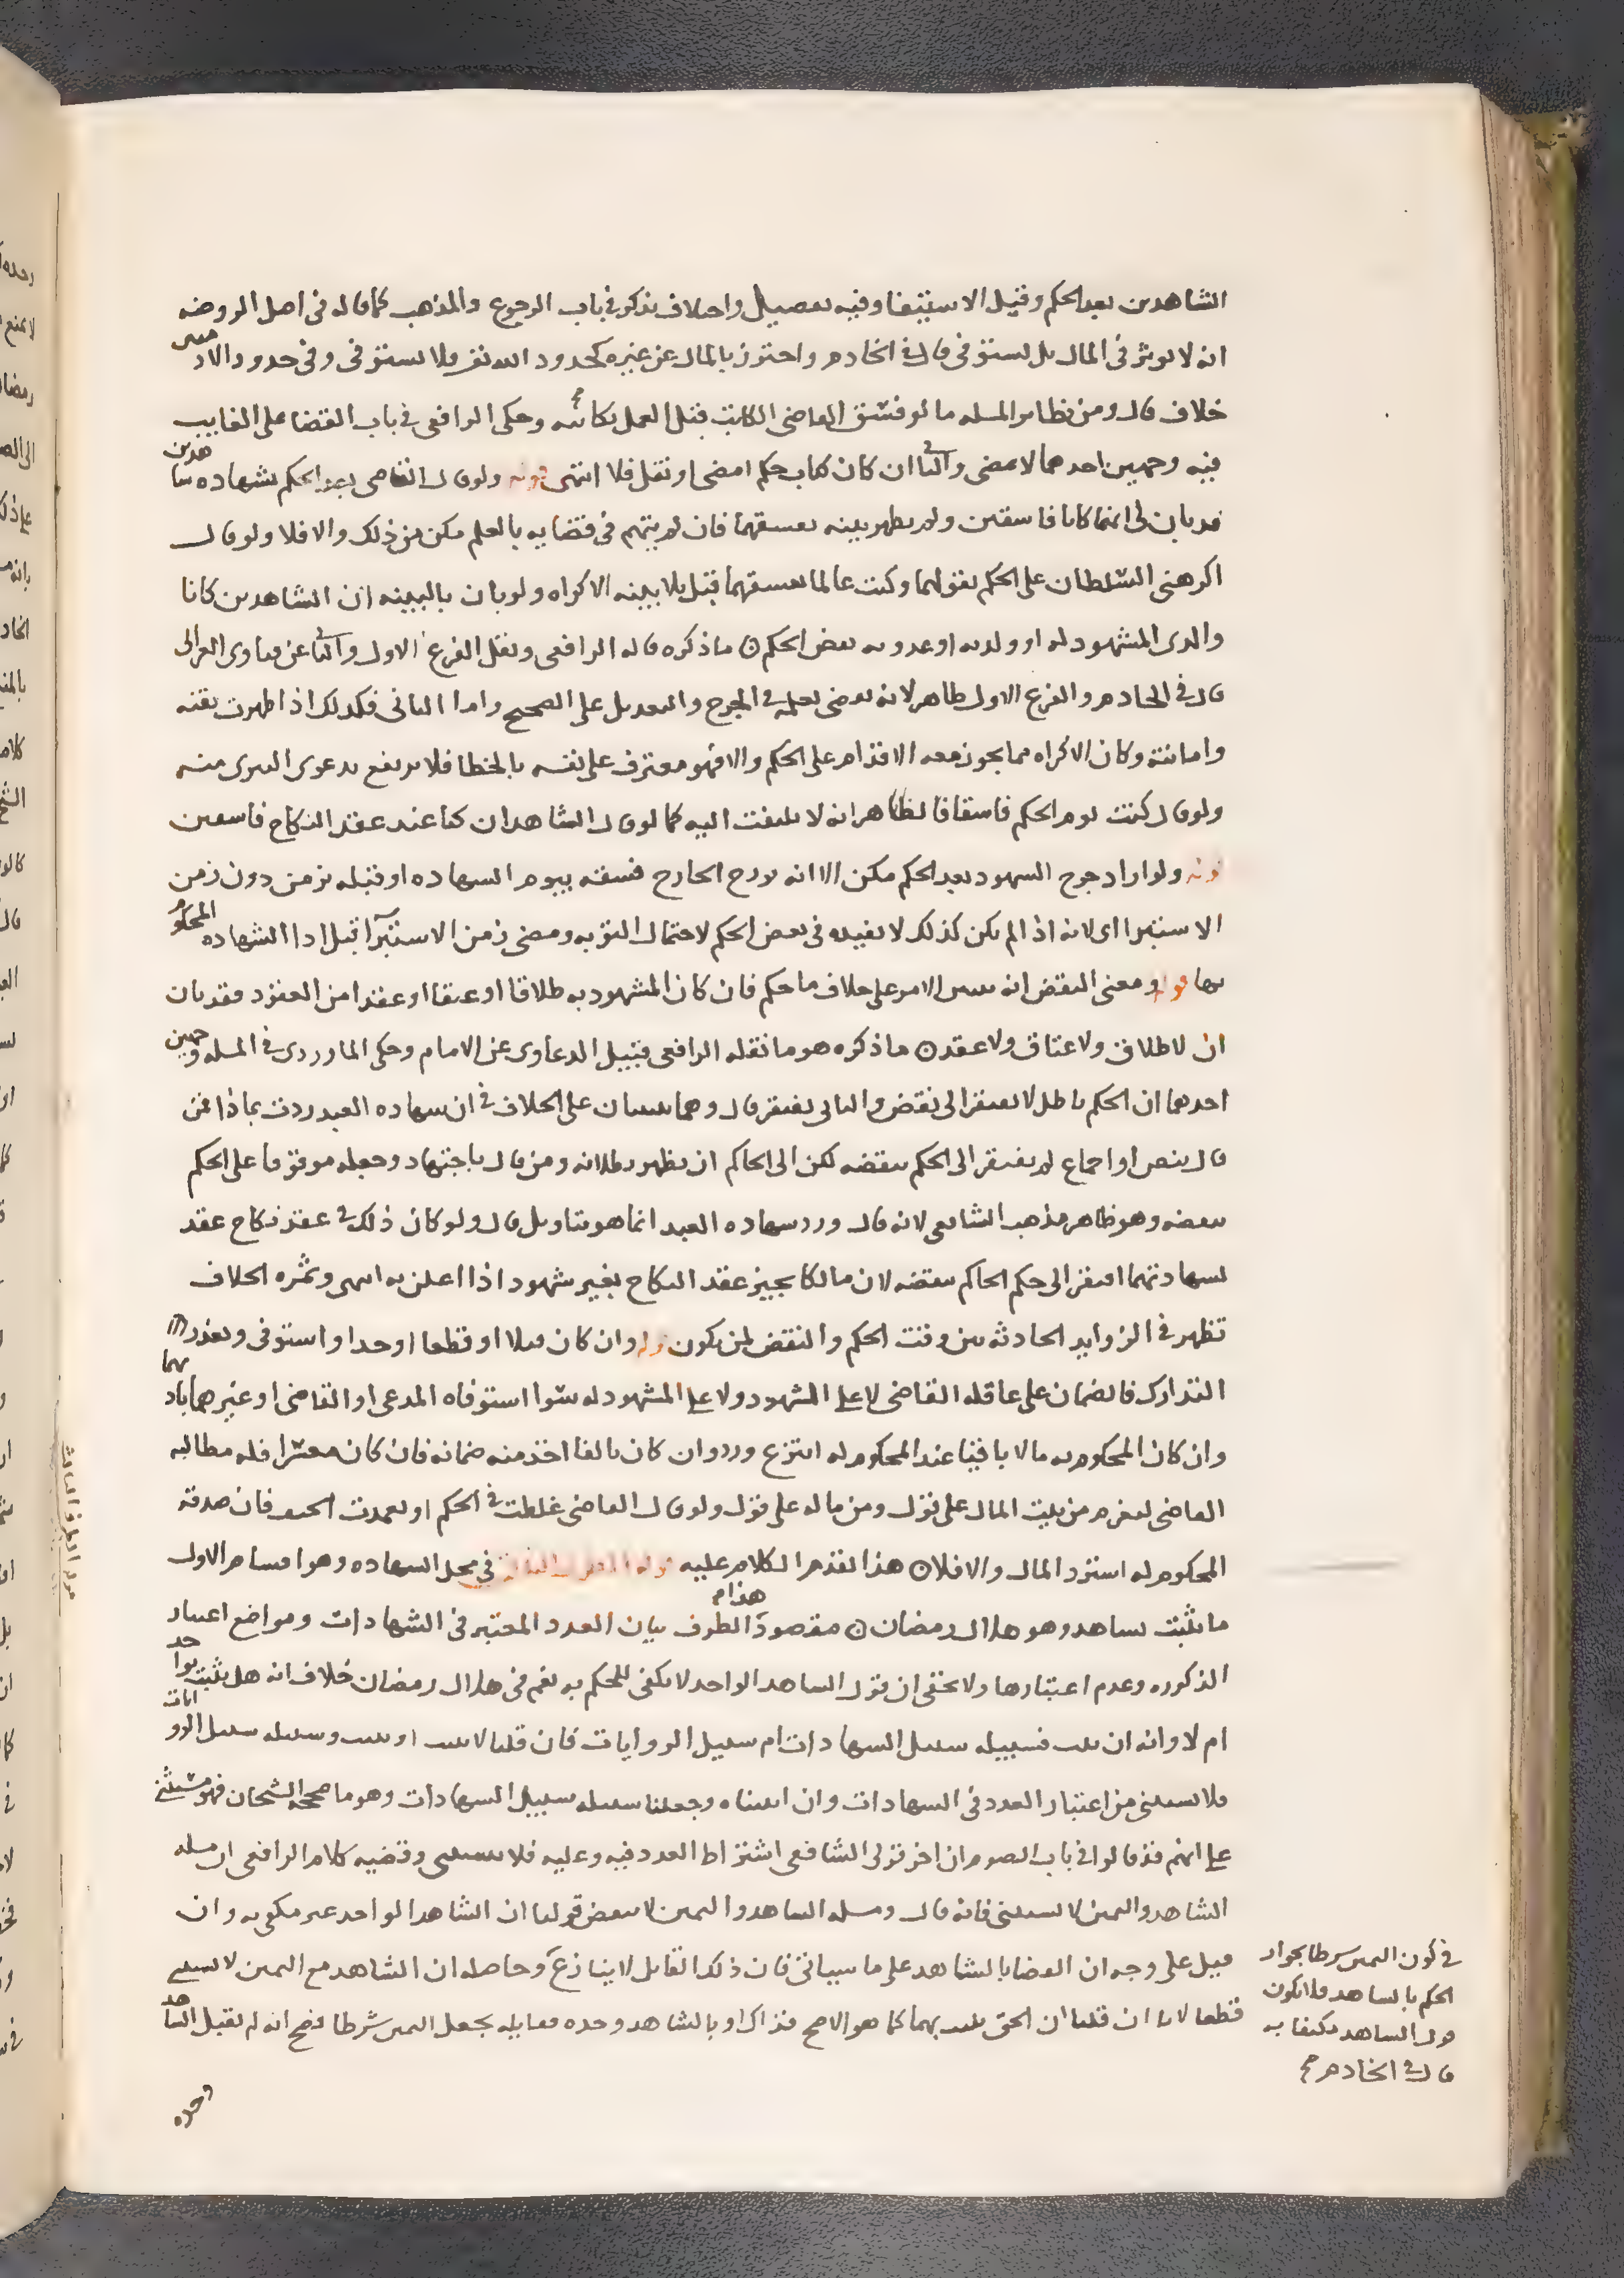 الشاهدين بعد الحكم وقبل الاستيفا وفيه تفصيل واختلاف يذكر في باب الرجوع والمذهب كما قاله في اصل الروضه
انه لا يوثر في المال بل يستوفى قال في الخادم واحترز بالمال عن غيره كحدود الله تعالى فلا يستوفى وفي حدود الادميين
خلاف قال ومن نظاير المسله ما لو فسق القاضي الكاتب قبل العمل بكتابه وحكى الرافعي في باب القضا على الغايب
فيه وجهين احدهما لا يمضى والثاني ان كان كتاب حكم امضى او نقل فلا انتهى قوله ولو قال القاضي بعد الحكم بشهاده شاهدين
قد بان لي انهما كانا فاسقين ولم يظهر بينه بفسقهما فان لم يتهم في قضايه بالعلم مكن من ذلك والا فلا ولو قال
اكرهني السلطان على الحكم بقولهما وكنت عالما بفسقهما قبل بلا بينه الاكراه ولو بان بالبينه ان الشاهدين كانا
والدي المشهود له او ولديه او عدويه نقض الحكم ن ما ذكره قاله الرافعي ونقل الفرع الاول والثاني عن فتاوى الغزالي
قال في الخادم والفرع الاول ظاهر لانه يقضي بعلمه في الجرح والتعديل على الصحيح واما الثاني فكذلك اذا ظهرت ثقته
وامانته وكان الاكراه مما يجوز معه الاقدام على الحكم والا فهو معترف على نفسه بالخطا فلا يرتفع بدعوى التبري منه
ولو قال كنت يوم الحكم فاسقا فالظاهر انه لا يلتفت اليه كما لو قال الشاهدان كنا عند عقد النكاح فاسقين
قوله ولو اراد جرح الشهود بعد الحكم مكن الا انه يورخ الجارح فسقه بيوم الشهاده او قبله بزمن دون زمن
الاستبرا اي لانه اذا لم يكن كذلك لا يفيده في نقض الحكم لاحتمال التوبه ومضي زمن الاستبرا قبل ادا الشهاده المحكوم
بها قوله ومعنى النقض انه تبين الامر على خلاف ما حكم فان كان المشهود به طلاقا او عتقا او عقدا من العقود فقد بان
ان لا طلاق ولا عتاق ولا عقد ن ما ذكره هو ما نقله الرافعي قبيل الدعاوى عن الامام وحكى الماوردي في المسله وجهين
احدهما ان الحكم باطل لا يفتقر الى نقض والثاني يفتقر قال وهما مبنيان على الخلاف في ان شهاده العبد ردت بماذا فمن
قال بنص او اجماع لم يفتقر الى الحكم بنقضه لكن الى الحاكم ان يظهر بطلانه ومن قال باجتهاد وجعله موقوفا على الحكم
بنقضه وهو ظاهر مذهب الشافعي لانه قال ورد شهاده العبد انما هو بتاويل قال ولو كان ذلك في عقد نكاح عقد
بشهادتهما افتقر الى حكم الحاكم بنقضه لان مالكا يجيز عقد النكاح بغير شهود اذا اعلن به انتهى وثمره الخلاف
تظهر في الزوايد الحادثه بين وقت الحكم والنقض لمن يكون قوله وان كان قتلا او قطعا او حدا واستوفى وتعذر
التدارك فالضمان على عاقله القاضي لا على المشهود ولا على المشهود له سوا استوفاه المدعي او القاضي او غيرهما باذنهما
وان كان المحكوم به مالا باقيا عند المحكوم له انتزع ورد وان كان تالفا اخذ منه ضمانه فان كان معسرا فله مطالبه
القاضي ليغرم من بيت المال على قول ومن ماله على قول ولو قال القاضي غلطت في الحكم او تعمدت الحيف فان صدقه
المحكوم له استرد المال والا فلا ن هذا تقدم الكلام عليه قوله الطرف الثالث في محل الشهاده وهو اقسام الاول
ما يثبت بشاهد وهو هلال رمضان ن مقصود هذا الطرف بيان العدد المعتبر في الشهادات ومواضع اعتبار
الذكوره وعدم اعتبارها ولا يخفى ان قول الشاهد الواحد لا يكفى للحكم به نعم في هلال رمضان خلاف انه هل يثبت بواحد
ام لا وانه ان ثبت فسبيله سبيل الشهادات ام سبيل الروايات فان قلنا لا يثبت او يثبت وسبيله سبيل الروايات
فلا يستثنى من اعتبار العدد في الشهادات وان اثبتناه وجعلنا سبيله سبيل الشهادات وهو ما صححه الشيخان فهو مستثنى
على انهم قد قالوا في باب الصوم ان اخر قولي الشافعي اشتراط العدد فيه وعليه فلا يستثنى وقضيه كلام الرافعي ان مسله
الشاهد واليمين لا تستثنى فانه قال ومسله الشاهد واليمين لا تنقض قولنا ان الشاهد الواحد غير مكفي به وان
قيل على وجه ان القضا بالشاهد على ما سياتي فان ذلك القايل لا ينازع وحاصله ان الشاهد مع اليمين لا يستثنى
قطعا لانا ان قلنا ان الحق يثبت بهما كما هو الاصح فذاك او بالشاهد وحده فقايله يجعل اليمين شرطا فصح انه لم يقبل الشاهد
وحده
في كون اليمين شرطا بجواز
الحكم بالشاهد فلا يكون
قول الشاهد مكتفا به
قال في الخادم صح